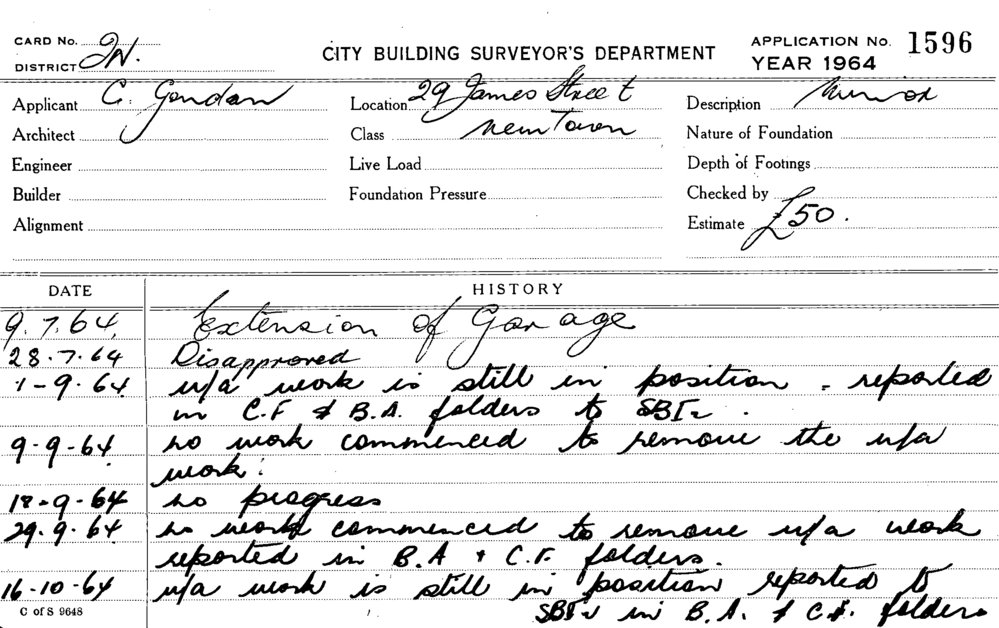 CARD No. 2N.
DISTRICT
CITY BUILDING SURVEYOR'S DEPARTMENT
APPLICATION No. 1596
YEAR 1964
Applicant C. Gondan Location 29 James Street Description Minor
Architect Class Newtown Nature of Foundation
Engineer Live Load Depth of Footings
Builder Foundation Pressure Checked by
Alignment Estimate £50.
DATE HISTORY
9.7.64. Extension of Garage
28.7.64 Disapproved
1-9.64. u/a work is still in position - reported
in C.F & B.A. folders to SBI.
9-9-64. no work commenced to remove the u/a
work.
18-9-64 no progress
29.9.64. no work commenced to remove u/a work
reported in B.A + C.F. folders.
16-10-64 u/a work is still in position reported to
C of S 9648 SBI in B.A. & C.F. folders